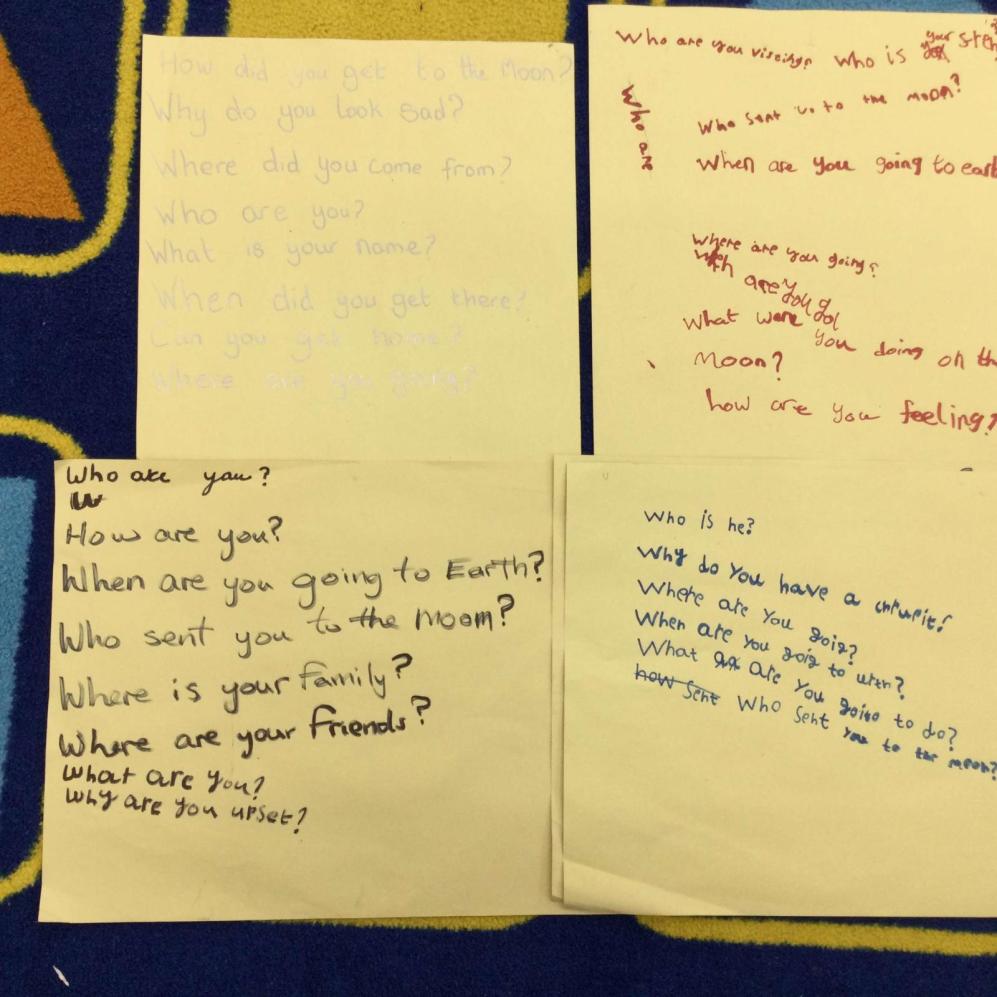 How did you get to the Moon?
Why do you look sad?
Where did you come from?
Who are you?
What is your name?
When did you get there?
Can you get home?
Where are you going?
Who are you viseing? Who is your
Who are
Who sent us to the moon?
When are you going to eart
Where are you going?
are you
What were you doing on the
Moon?
how are you feeling?
Who are you?
W
How are you?
When are you going to Earth?
Who sent you to the Moom?
Where is your Family?
Where are your Friends?
What are you?
Why are you upset?
Who is he?
Why do you have a
Where are you goig?
When are you goig to urth?
What are you goino to do?
how sent Who sent you to the moon?